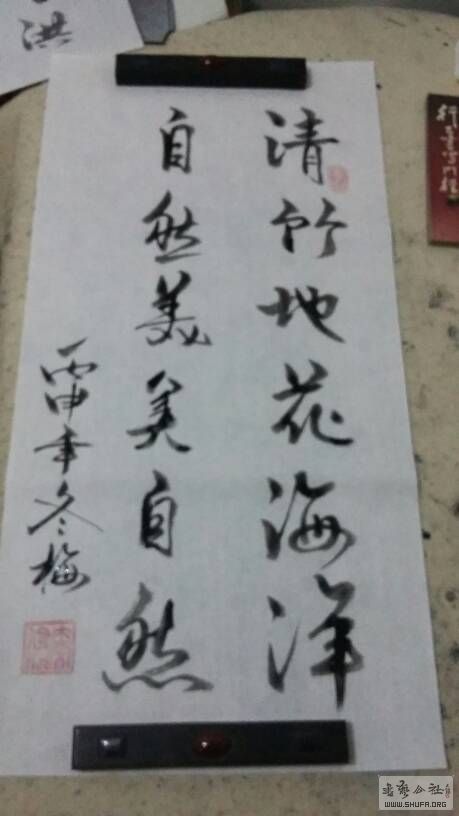 清竹地花海洋
自然美美自然
丙申年冬梅
洪
书艺公社
WWW.SHUFA.ORG